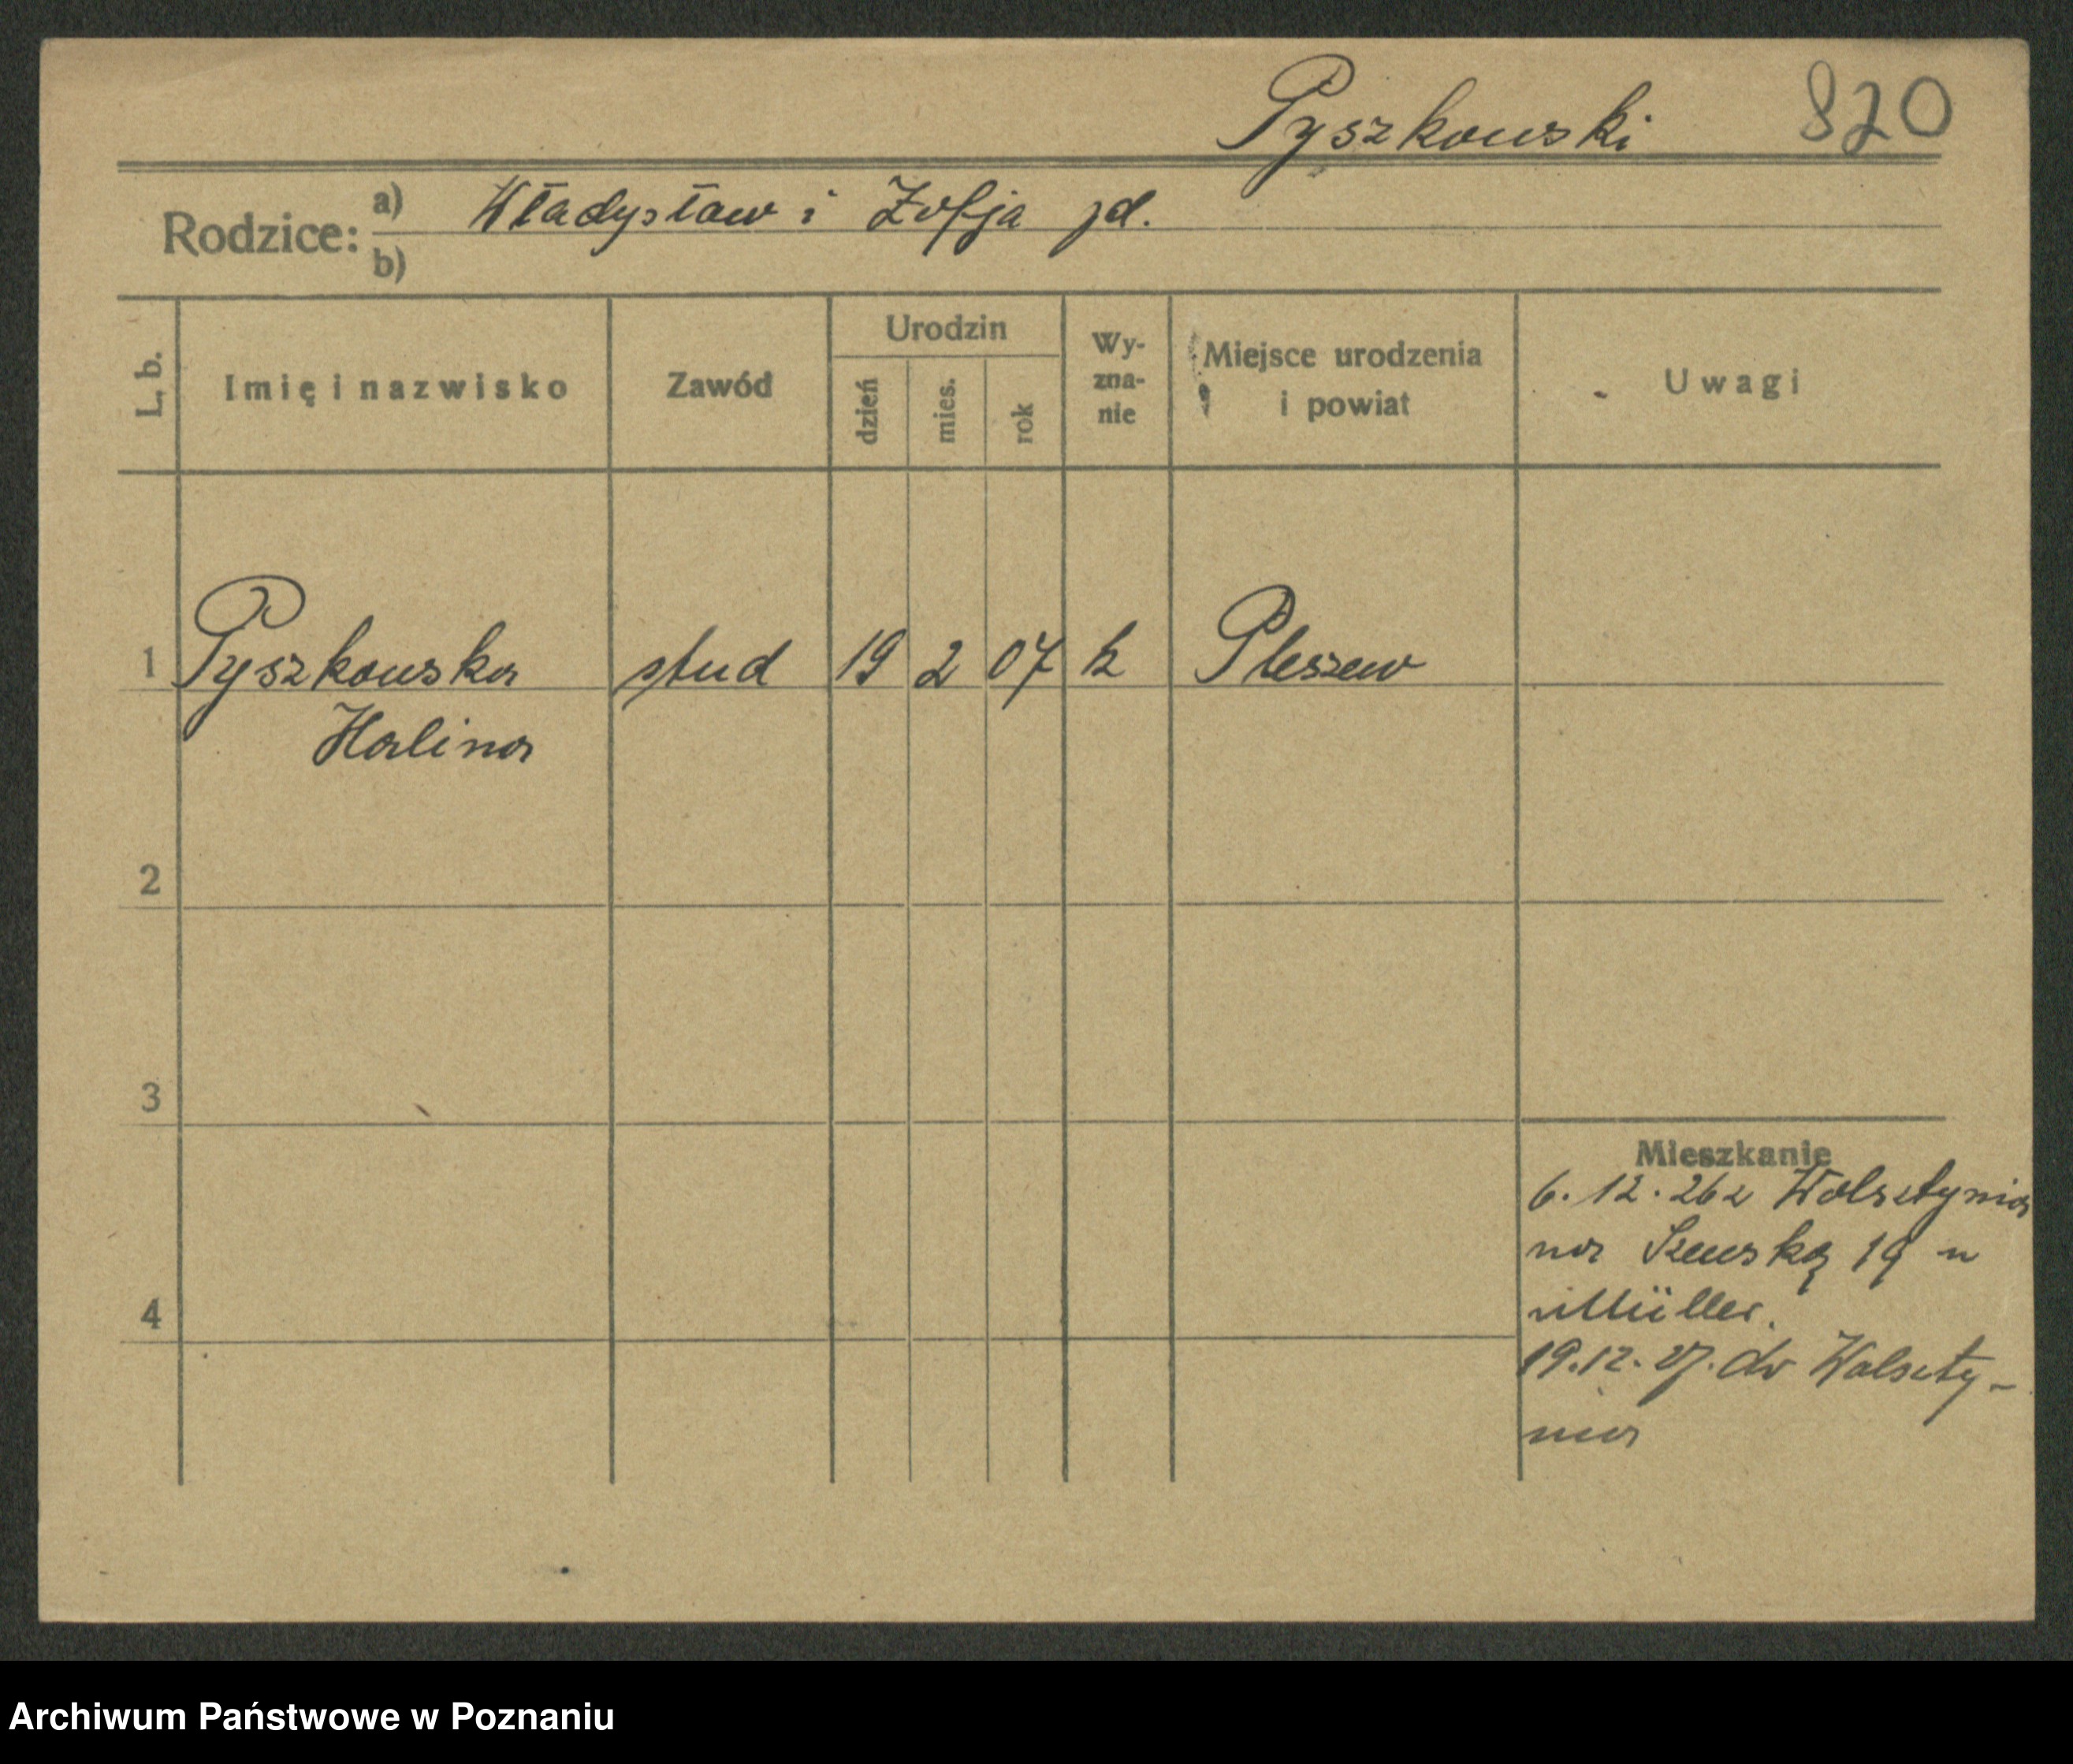 Pyszkowski 820
Rodzice: a) Władysław i Zofja jd.
b)
L. b. Imię i nazwisko Zawód Urodzin dzień mies. rok Wy-zna-nie Miejsce urodzenia i powiat Uwagi
1 Pyszkowska stud 19 2 07 k Pleszew
Halina
2
3
Mieszkanie
6.12.26 z Wolsztynia
na Szewską 19 u
Müller.
4
19.12.27. do Wolszty-
nia
Archiwum Państwowe w Poznaniu